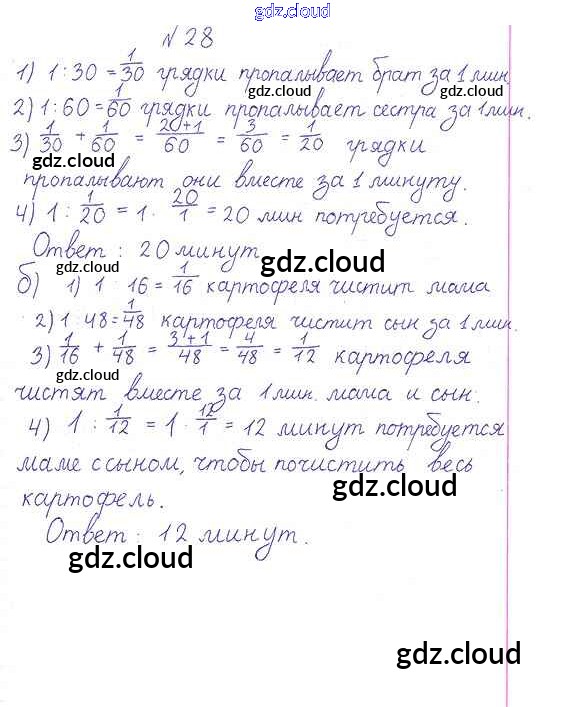 gdz.cloud
№ 28
1) 1 : 30 = 1/30 грядки пропалывает брат за 1 мин.
2) 1 : 60 = 1/60 грядки пропалывает сестра за 1 мин.
3) 1/30 + 1/60 = 2+1/60 = 3/60 = 1/20 грядки
gdz.cloud
gdz.cloud
пропалывают они вместе за 1 минуту.
4) 1 : 1/20 = 1 · 20/1 = 20 мин потребуется.
Ответ : 20 минут
gdz.cloud
gdz.cloud
б) 1) 1 : 16 = 1/16 картофеля чистит мама
2) 1 : 48 = 1/48 картофеля чистит сын за 1 мин.
3) 1/16 + 1/48 = 3+1/48 = 4/48 = 1/12 картофеля
gdz.cloud
чистят вместе за 1 мин. мама и сын.
4) 1 : 1/12 = 1 · 12/1 = 12 минут потребуется
маме с сыном, чтобы почистить весь
gdz.cloud
картофель.
Ответ : 12 минут.
gdz.cloud
gdz.cloud